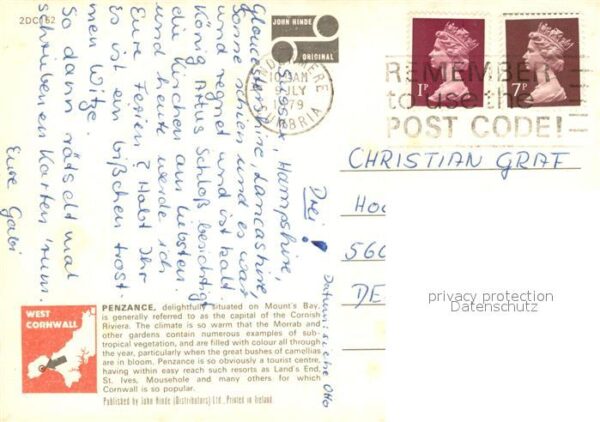 2DC162
JOHN HINDE
ORIGINAL
WINDERMERE
10 AM
9 JLY
1979
CUMBRIA
REMEMBER
to use the
POST CODE!
1P
7P
Hampshire,
Gloucestershire, Lancashire,
Sonne schien und es war
und regnet und ist kalt.
König Artus Schloß besichtigt
die Kirschen am liebsten.
und heute werde ich
Eure Ferien? Habt Ihr
Es ist ein bißchen trost.
men Witze.
So dann rätselt mal
schreiben en Karten 'rum.
Eure Gabi
Drei!
Otto
CHRISTIAN GRAF
HO
560
DE
privacy protection
Datenschutz
WEST
CORNWALL
PENZANCE, delightfully situated on Mount's Bay,
is generally referred to as the capital of the Cornish
Riviera. The climate is so warm that the Morrab and
other gardens contain numerous examples of sub-
tropical vegetation, and are filled with colour all through
the year, particularly when the great bushes of camellias
are in bloom. Penzance is so obviously a tourist centre,
having within easy reach such resorts as Land's End,
St. Ives, Mousehole and many others for which
Cornwall is so popular.
Published by John Hinde (Distributors) Ltd., Printed in Ireland.